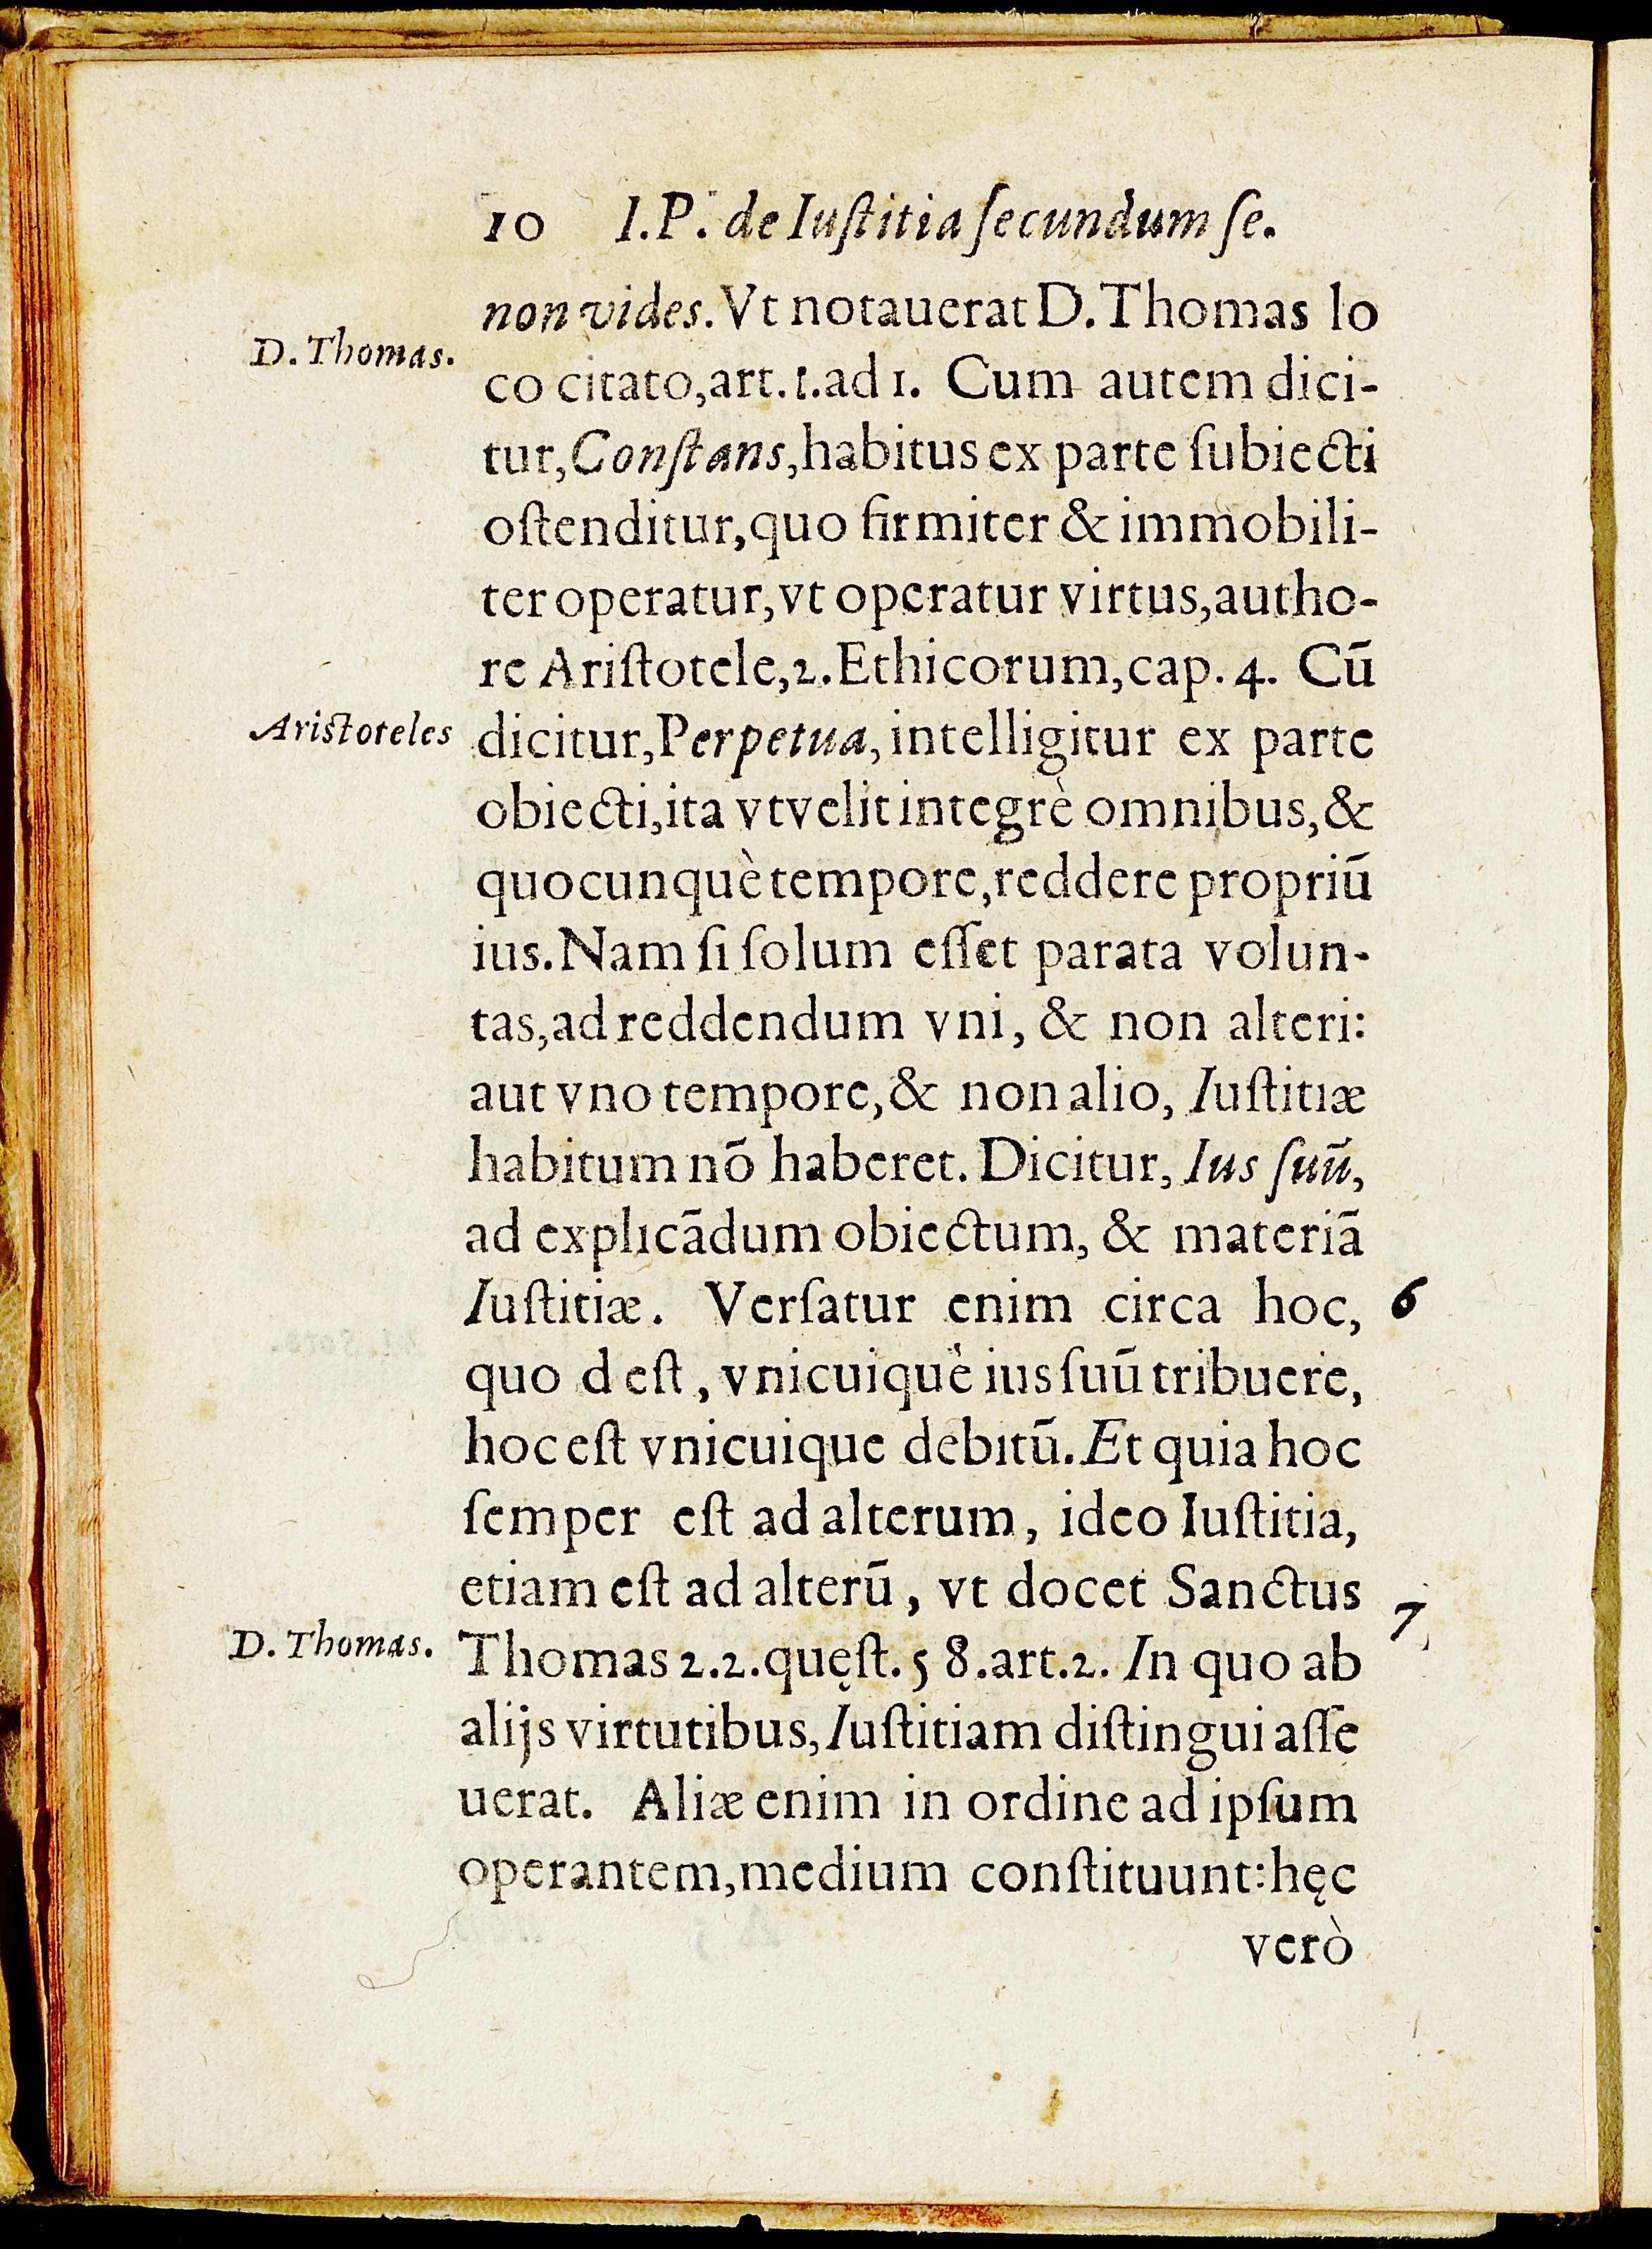 10 I.P. de Iuſtitia ſecundum ſe.
non vides. Vt notauerat D. Thomas lo
D. Thomas.
co citato, art. 1. ad 1. Cum autem dici-
tur, Conſtans, habitus ex parte ſubiecti
oſtenditur, quo firmiter & immobili-
ter operatur, vt operatur virtus, autho-
re Ariſtotele, 2. Ethicorum, cap. 4. Cū
Ariſtoteles
dicitur, Perpetua, intelligitur ex parte
obiecti, ita vt velit integrè omnibus, &
quocunquè tempore, reddere propriū
ius. Nam ſi ſolum eſſet parata volun-
tas, ad reddendum vni, & non alteri:
aut vno tempore, & non alio, Iuſtitiæ
habitum nō haberet. Dicitur, Ius ſuū,
ad explicādum obiectum, & materiā
Iuſtitiæ. Verſatur enim circa hoc,
6
quo d eſt, vnicuiquè ius ſuū tribuere,
hoc eſt vnicuique debitū. Et quia hoc
ſemper eſt ad alterum, ideo Iuſtitia,
etiam eſt ad alterū, vt docet Sanctus
7
D. Thomas.
Thomas 2.2. quęſt. 58. art. 2. In quo ab
alijs virtutibus, Iuſtitiam diſtingui aſſe
uerat. Aliæ enim in ordine ad ipſum
operantem, medium conſtituunt: hęc
verò